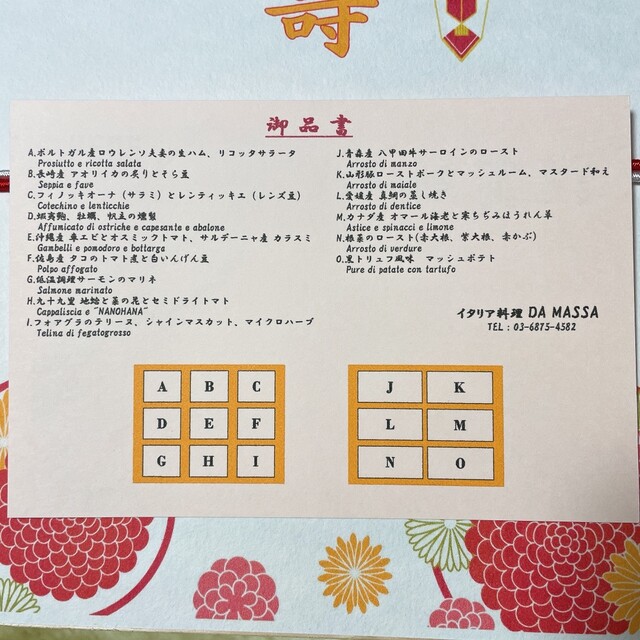 寿
御品書
A.ポルトガル産ロウレンソ夫妻の生ハム、リコッタサラータ
Prosiutto e ricotta salata
B.長崎産 アオリイカの炙りとそら豆
Seppia e fave
C.フィノッキオーナ（サラミ）とレンティッキエ（レンズ豆）
Cotechino e lenticchie
D.蝦夷鮑、牡蠣、帆立の燻製
Affumicato di ostriche e capesante e abalone
E.沖縄産 車エビとオスミックトマト、サルデーニャ産 カラスミ
Gambelli e pomodoro e bottarga
F.佐島産 タコのトマト煮と白いんげん豆
Polpo affogato
G.低温調理サーモンのマリネ
Salmone marinato
H.九十九里 地蛤と菜の花とセミドライトマト
Cappaliscia e "NANOHANA"
I.フォアグラのテリーヌ、シャインマスカット、マイクロハーブ
Telina di fegatogrosso
J.青森産 八甲田牛サーロインのロースト
Arrosto di manzo
K.山形豚ローストポークとマッシュルーム、マスタード和え
Arrosto di maiale
L.愛媛産 真鯛の蒸し焼き
Arrosto di dentice
M.カナダ産 オマール海老と寒ちぢみほうれん草
Astice e spinacci e limone
N.根菜のロースト(赤大根、紫大根、赤かぶ)
Arrosto di verdure
O.黒トリュフ風味 マッシュポテト
Pure di patate con tartufo
イタリア料理 DA MASSA
TEL : 03-6875-4382
A B C
D E F
G H I
J K
L M
N O